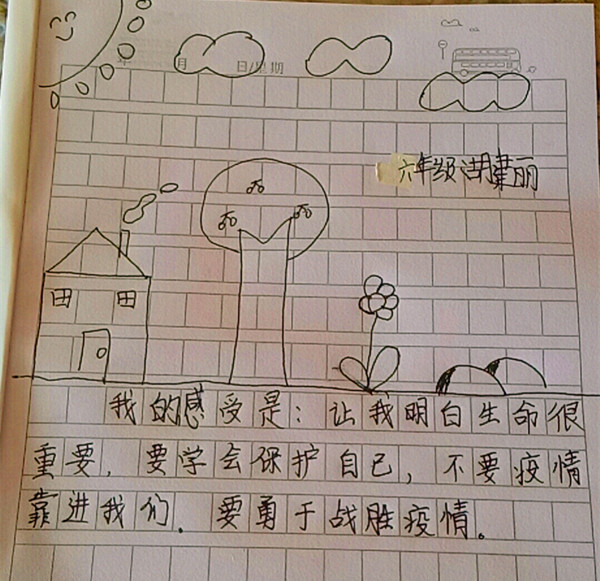 年 月 日/星期
六年级 湖肃丽
我的感受是：让我明白生命很
重要，要学会保护自己，不要疫情
靠进我们．要勇于战胜疫情。